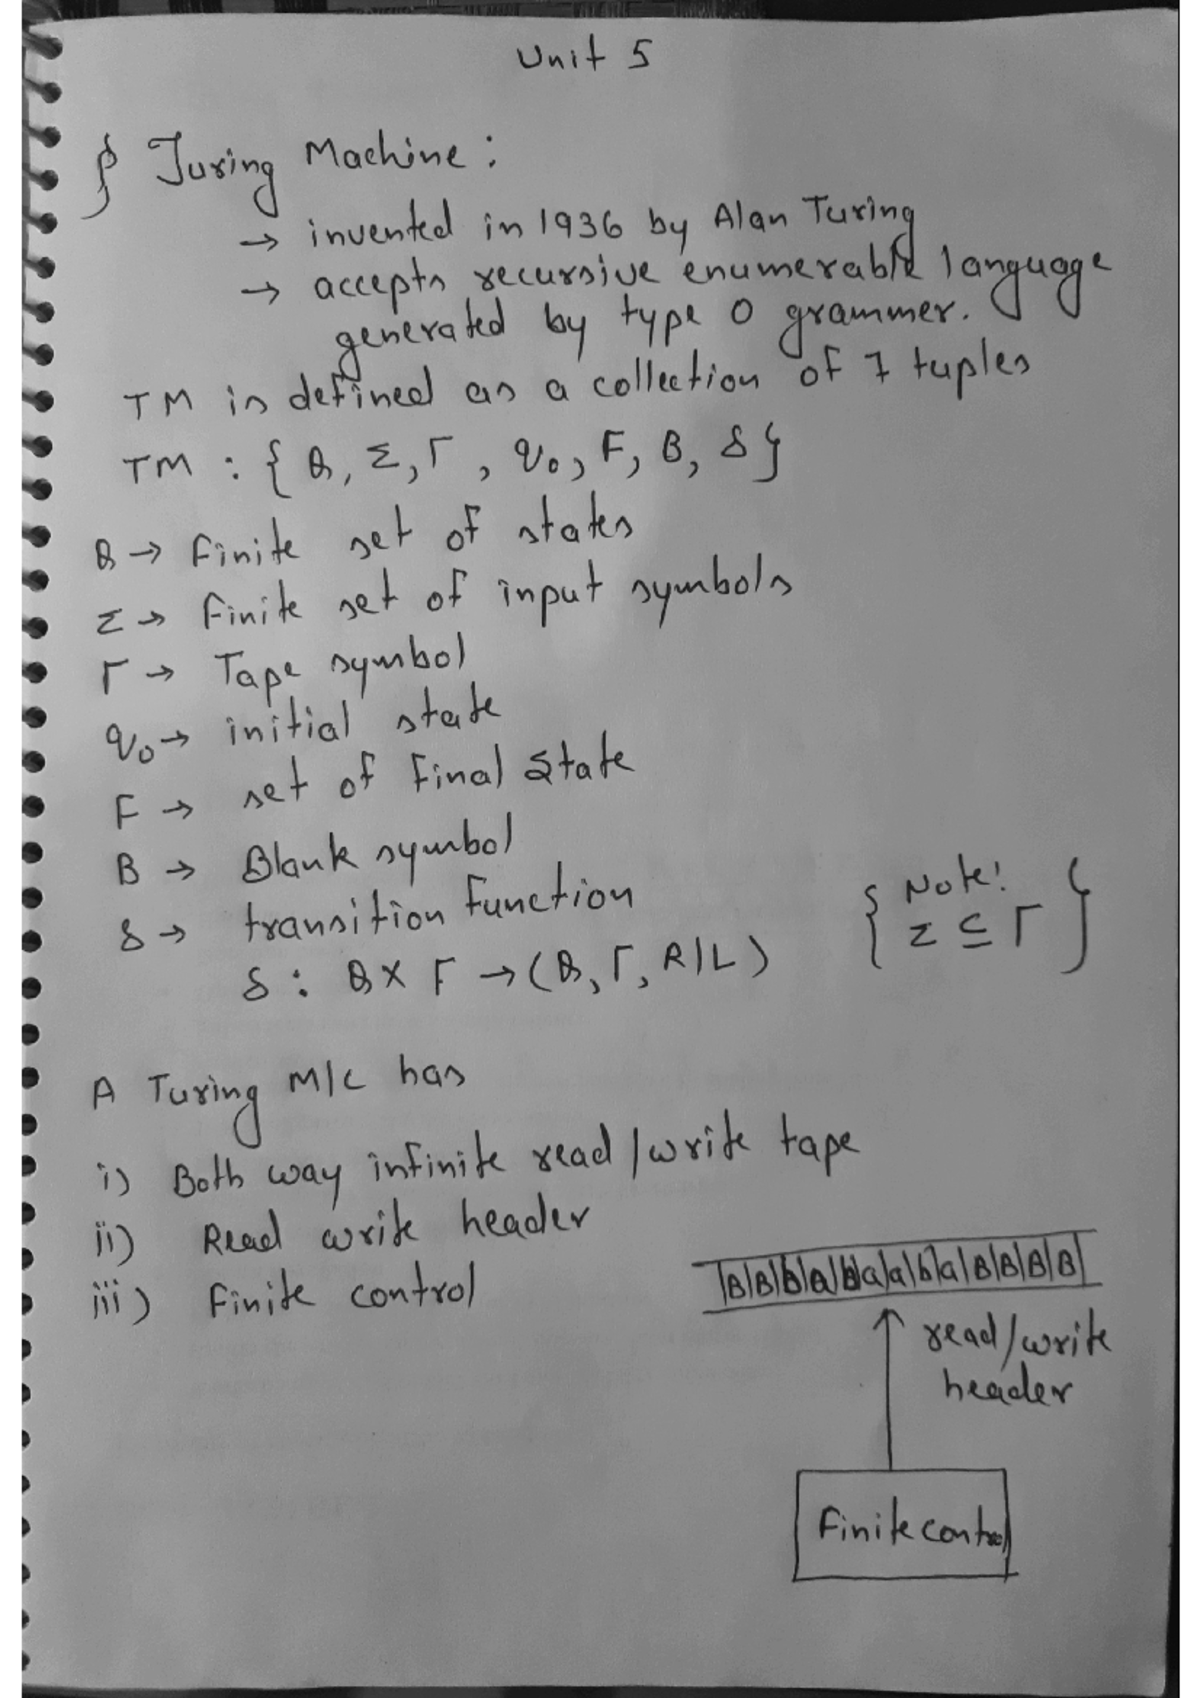 Unit 5
Turing Machine :
→ invented in 1936 by Alan Turing
→ accepts recursive enumerable language
generated by type 0 grammer.
TM is defined as a collection of 7 tuples
TM : { Q, Σ, Γ, q0, F, B, δ }
Q → Finite set of states
Σ → Finite set of input symbols
Γ → Tape symbol
q0 → initial state
F → set of Final State
B → Blank symbol
δ → transition Function
{ Note!
Σ ⊆ Γ }
δ : Q X F → (Q, Γ, R/L)
A Turing M/C has
i) Both way infinite read/write tape
ii) Read write header
iii) Finite control
|B|B|b|a|b|a|a|b|a|B|B|B|B|
read/write
header
Finite control